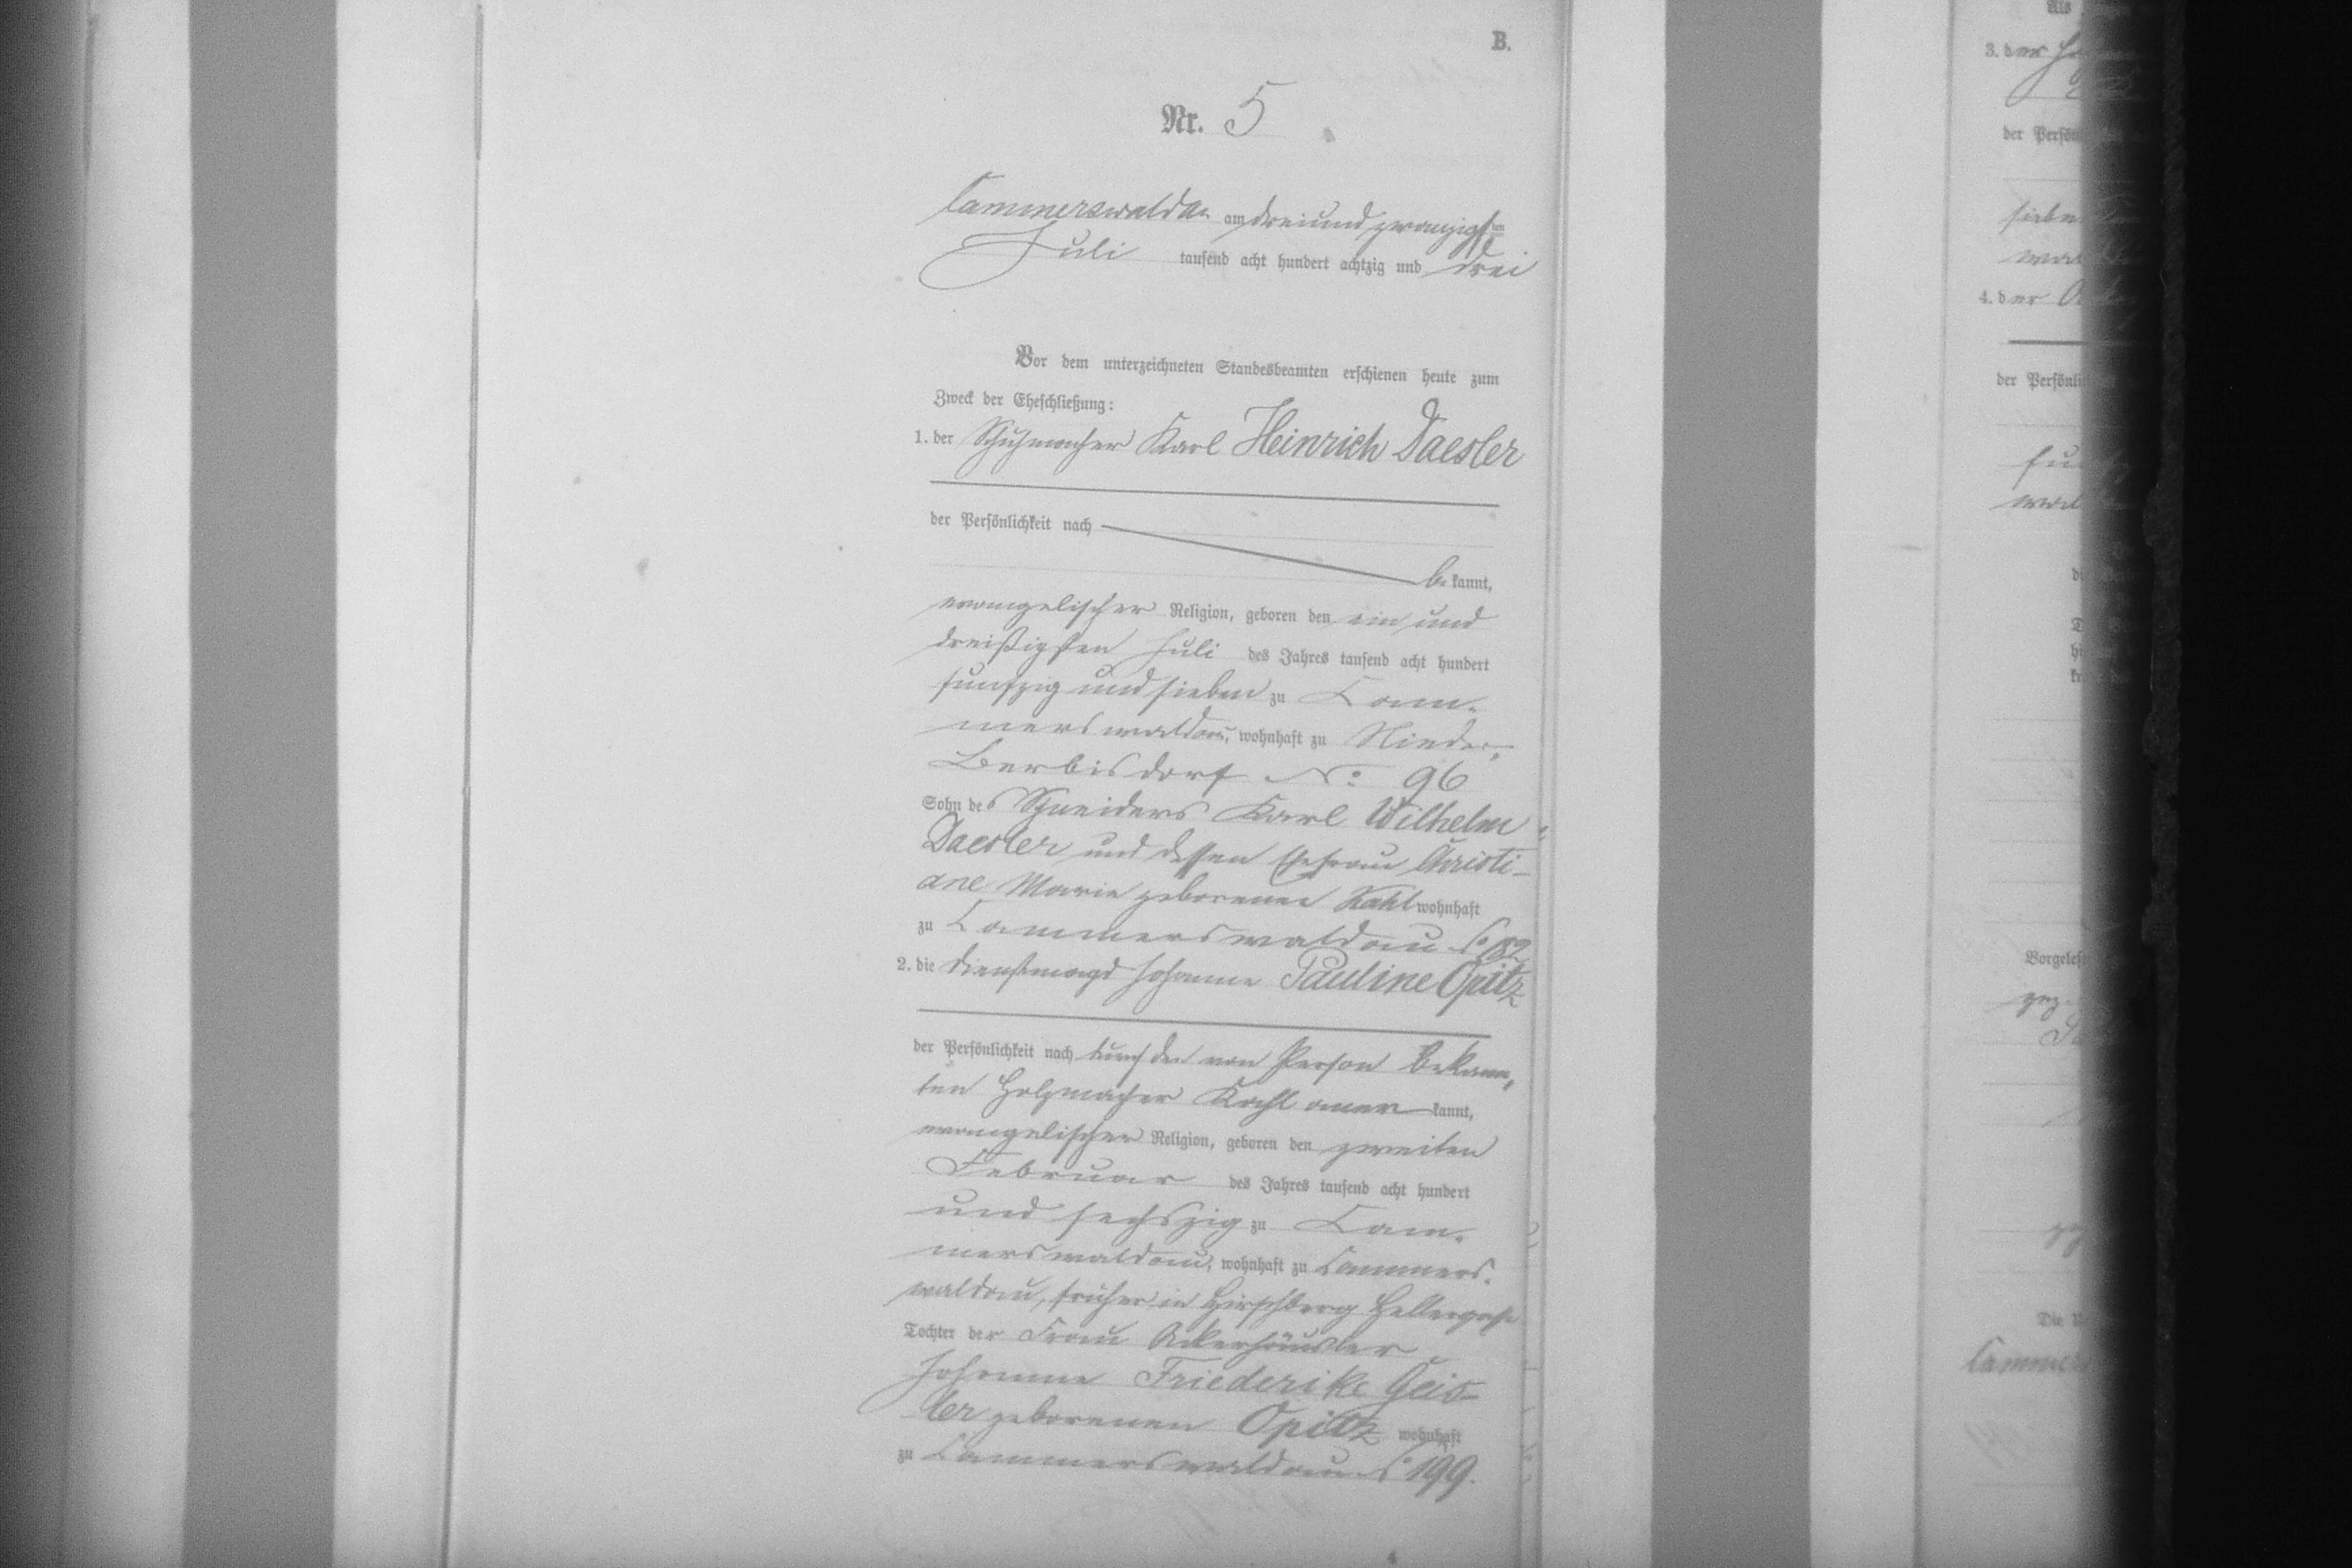 B.
Nr. 5
Cammerswaldau am dreiundzwanzigsten
Juli tausend acht hundert achtzig und drei
Vor dem unterzeichneten Standesbeamten erschienen heute zum
Zweck der Eheschließung:
1. der Schuhmacher Karl Heinrich Daesler
der Persönlichkeit nach
be kannt,
evangelischer Religion, geboren den ein und
dreißigsten Juli des Jahres tausend acht hundert
funfzig und sieben zu Cam-
merswaldau, wohnhaft zu Nieder-
Berbisdorf No: 96
Sohn des Schneiders Karl Wilhelm
Daesler und dessen Ehefrau Christi-
ane Marie geborenen Kahl wohnhaft
zu Cammerswaldau No 82
2. die Dienstmagd Johanne Pauline Opitz
der Persönlichkeit nach durch den von Person bekann-
ten Holzmacher Kahl aner kannt,
evangelischer Religion, geboren den zweiten
Februar des Jahres tausend acht hundert
und sechszig zu Cam-
merswaldau, wohnhaft zu Cammers-
waldau, früher in Hirschberg Hellergasse
Tochter der Frau Ackerhäusler
Johanne Friederike Geis-
ler geborenen Opitz wohnhaft
zu Cammerswaldau No 199.
Als
3. der
der Persön
4. der
der Persönli
Vorgeles
gez.
Die
Cammers